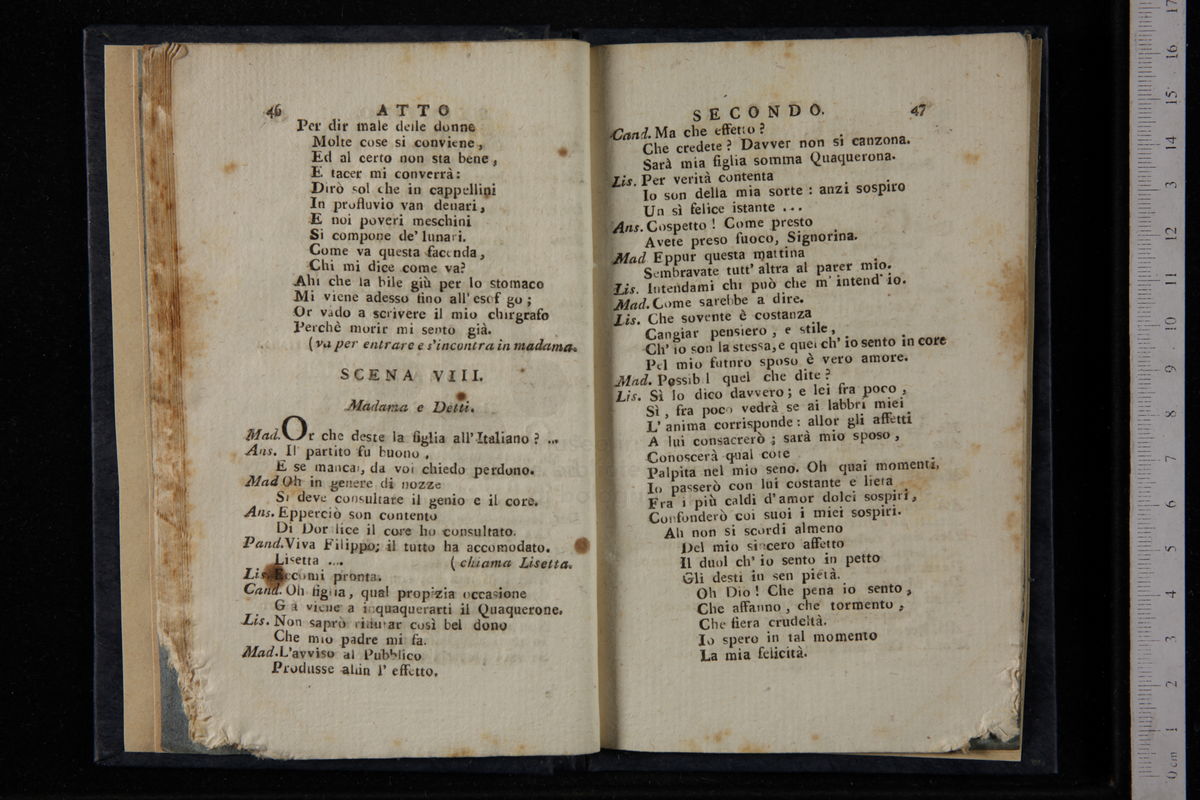 46 ATTO
Per dir male delle donne
Molte cose si conviene,
Ed al certo non sta bene,
E tacer mi converrà:
Dirò sol che in cappellini
In profluvio van denari,
E noi poveri meschini
Si compone de' lunari.
Come va questa facenda,
Chi mi dice come va?
Ahi che la bile giù per lo stomaco
Mi viene adesso fino all' esof go;
Or vado a scrivere il mio chirgrafo
Perchè morir mi sento già.
(va per entrare e s'incontra in madama.
SCENA VIII.
Madama e Detti.
Mad. Or che deste la figlia all' Italiano? ...
Ans. Il partito fu buono,
E se mancai, da voi chiedo perdono.
Mad Oh in genere di nozze
Si deve consultare il genio e il core.
Ans. Epperciò son contento
Di Dor lice il core ho consultato.
Pand. Viva Filippo; il tutto ha accomodato.
Lisetta .... (chiama Lisetta.
Lis. Eccomi pronta.
Cand. Oh figlia, qual propizia occasione
G à viene a inquaquerarti il Quaquerone.
Lis. Non saprò rifiutar così bel dono
Che mio padre mi fa.
Mad. L'avviso al Pubblico
Produsse alfin l' effetto.
SECONDO. 47
Cand. Ma che effetto?
Che credete? Davver non si canzona.
Sarà mia figlia somma Quaquerona.
Lis. Per verità contenta
Io son della mia sorte: anzi sospiro
Un sì felice istante ...
Ans. Cospetto! Come presto
Avete preso fuoco, Signorina.
Mad Eppur questa mattina
Sembravate tutt' altra al parer mio.
Lis. Intendami chi può che m' intend' io.
Mad. Come sarebbe a dire.
Lis. Che sovente è costanza
Cangiar pensiero, e stile,
Ch' io son la stessa, e quel ch' io sento in core
Pel mio futnro sposo è vero amore.
Mad. Possib l quel che dite?
Lis. Sì lo dico davvero; e lei fra poco,
Sì, fra poco vedrà se ai labbri miei
L' anima corrisponde: allor gli affetti
A lui consacrerò; sarà mio sposo,
Conoscerà qual core
Palpita nel mio seno. Oh quai momenti,
Io passerò con lui costante e lieta
Fra i più caldi d' amor dolci sospiri,
Confonderò coi suoi i miei sospiri.
Ah non si scordi almeno
Del mio sincero affetto
Il duol ch' io sento in petto
Gli desti in sen pietà.
Oh Dio! Che pena io sento,
Che affanno, che tormento,
Che fiera crudeltà.
Io spero in tal momento
La mia felicità.
0 cm 1 2 3 4 5 6 7 8 9 10 11 12 13 14 15 16 17